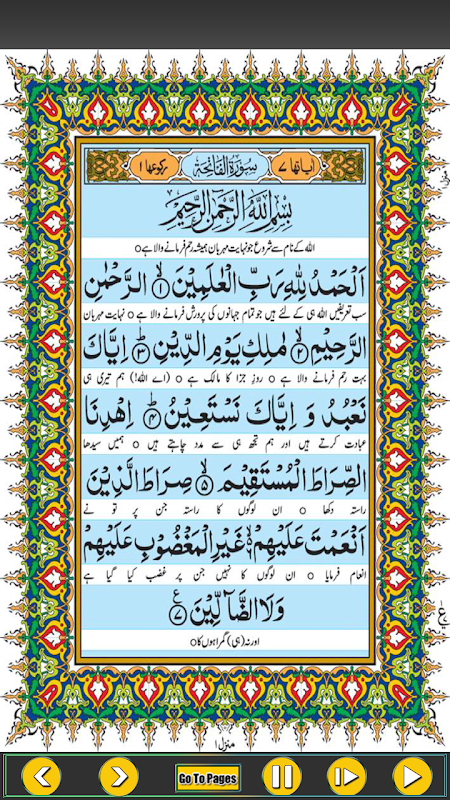 اٰیاتھا ۷ سُوْرَۃُ الْفَاتِحَۃِ رکوعھا ۱
بِسْمِ اللّٰهِ الرَّحْمٰنِ الرَّحِیْمِ
اللہ کے نام سے شروع جو نہایت مہربان ہمیشہ رحم فرمانے والا ہے o
اَلْحَمْدُ لِلّٰهِ رَبِّ الْعٰلَمِیْنَ ۙ﴿۱﴾ الرَّحْمٰنِ
سب تعریفیں اللہ ہی کے لئے ہیں جو تمام جہانوں کی پرورش فرمانے والا ہے o نہایت مہربان
الرَّحِیْمِ ۙ﴿۲﴾ مٰلِكِ یَوْمِ الدِّیْنِ ؕ﴿۳﴾ اِیَّاكَ
بہت رحم فرمانے والا ہے o روزِ جزا کا مالک ہے o (اے اللہ!) ہم تیری ہی
نَعْبُدُ وَ اِیَّاكَ نَسْتَعِیْنُ ؕ﴿۴﴾ اِهْدِنَا
عبادت کرتے ہیں اور ہم تجھ ہی سے مدد چاہتے ہیں o ہمیں سیدھا
الصِّرَاطَ الْمُسْتَقِیْمَ ۙ﴿۵﴾ صِرَاطَ الَّذِیْنَ
راستہ دکھا o ان لوگوں کا راستہ جن پر تو نے
اَنْعَمْتَ عَلَیْهِمْ ۙ۬﴿۶﴾ غَیْرِ الْمَغْضُوْبِ عَلَیْهِمْ
انعام فرمایا o ان لوگوں کا نہیں جن پر غضب کیا گیا ہے
وَلَا الضَّآلِّیْنَ ﴿۷﴾ ع
اور نہ (ہی) گمراہوں کا o
منزل ۱
Go To Pages